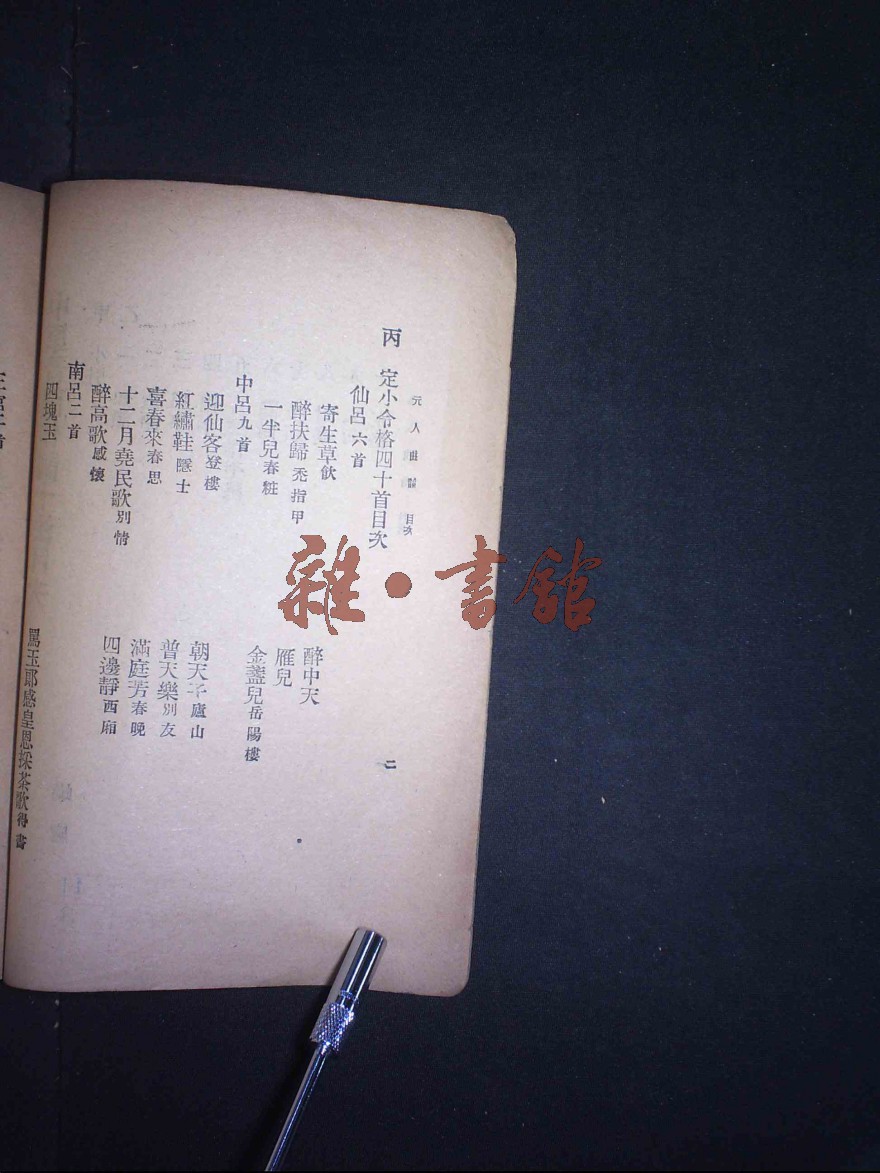 元人曲論 目次 二
丙 定小令格四十首目次
仙呂六首
寄生草飲 醉中天
醉扶歸禿指甲 雁兒
一半兒春粧 金盞兒岳陽樓
中呂九首
迎仙客登樓 朝天子廬山
紅繡鞋隱士 普天樂別友
喜春來春思 滿庭芳春晚
十二月堯民歌別情 四邊靜西廂
醉高歌感懷
南呂二首
四塊玉 罵玉郎感皇恩採茶歌得書
雜·書館